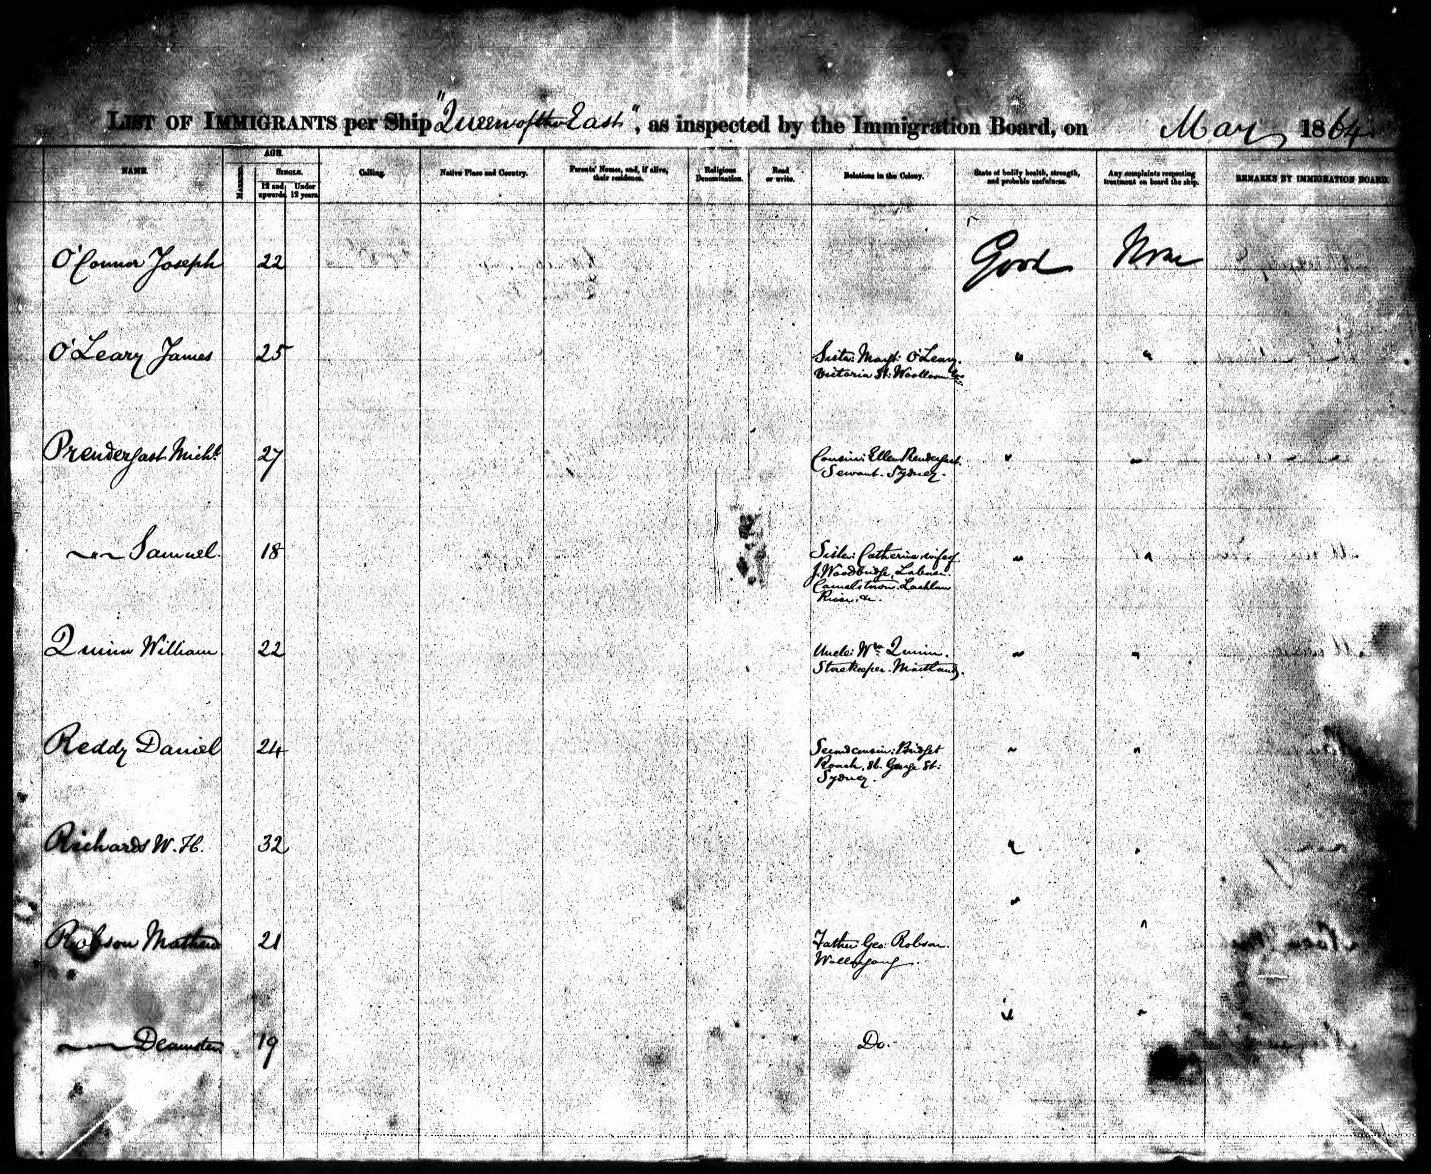 LIST OF IMMIGRANTS per Ship "Queen of the East", as inspected by the Immigration Board, on May 1864
NAME.
AGE.
MARRIED.
SINGLE.
12 and upwards.
Under 12 years.
Calling.
Native Place and Country.
Parents' Names, and, if alive,
their residence.
Religious
Denomination.
Read
or write.
Relations in the Colony.
State of bodily health, strength,
and probable usefulness.
Any complaints respecting
treatment on board the ship.
REMARKS BY IMMIGRATION BOARD.
O'Connor Joseph 22 Good None
O'Leary James 25 Sister: Margt: O'Leary. " "
Victoria St: Woolloom
Prendergast Michl 27 Cousin: Ellen Prendergast. " "
Servant. Sydney.
—"— Samuel. 18 Sister: Catherine wife of " "
J. Woodbridge, Laborer.
Lachlan
River, &c.
Quinn William 22 Uncle: Wm Quinn. " "
Storekeeper. Maitland.
Reddy Daniel 24 Second cousin: Bridget " "
Roach, St. George St:
Sydney.
Richards W. H. 32 " "
Robson Mathew 21 Father: Geo: Robson. " "
Wollongong
—"— 19 Do. " "